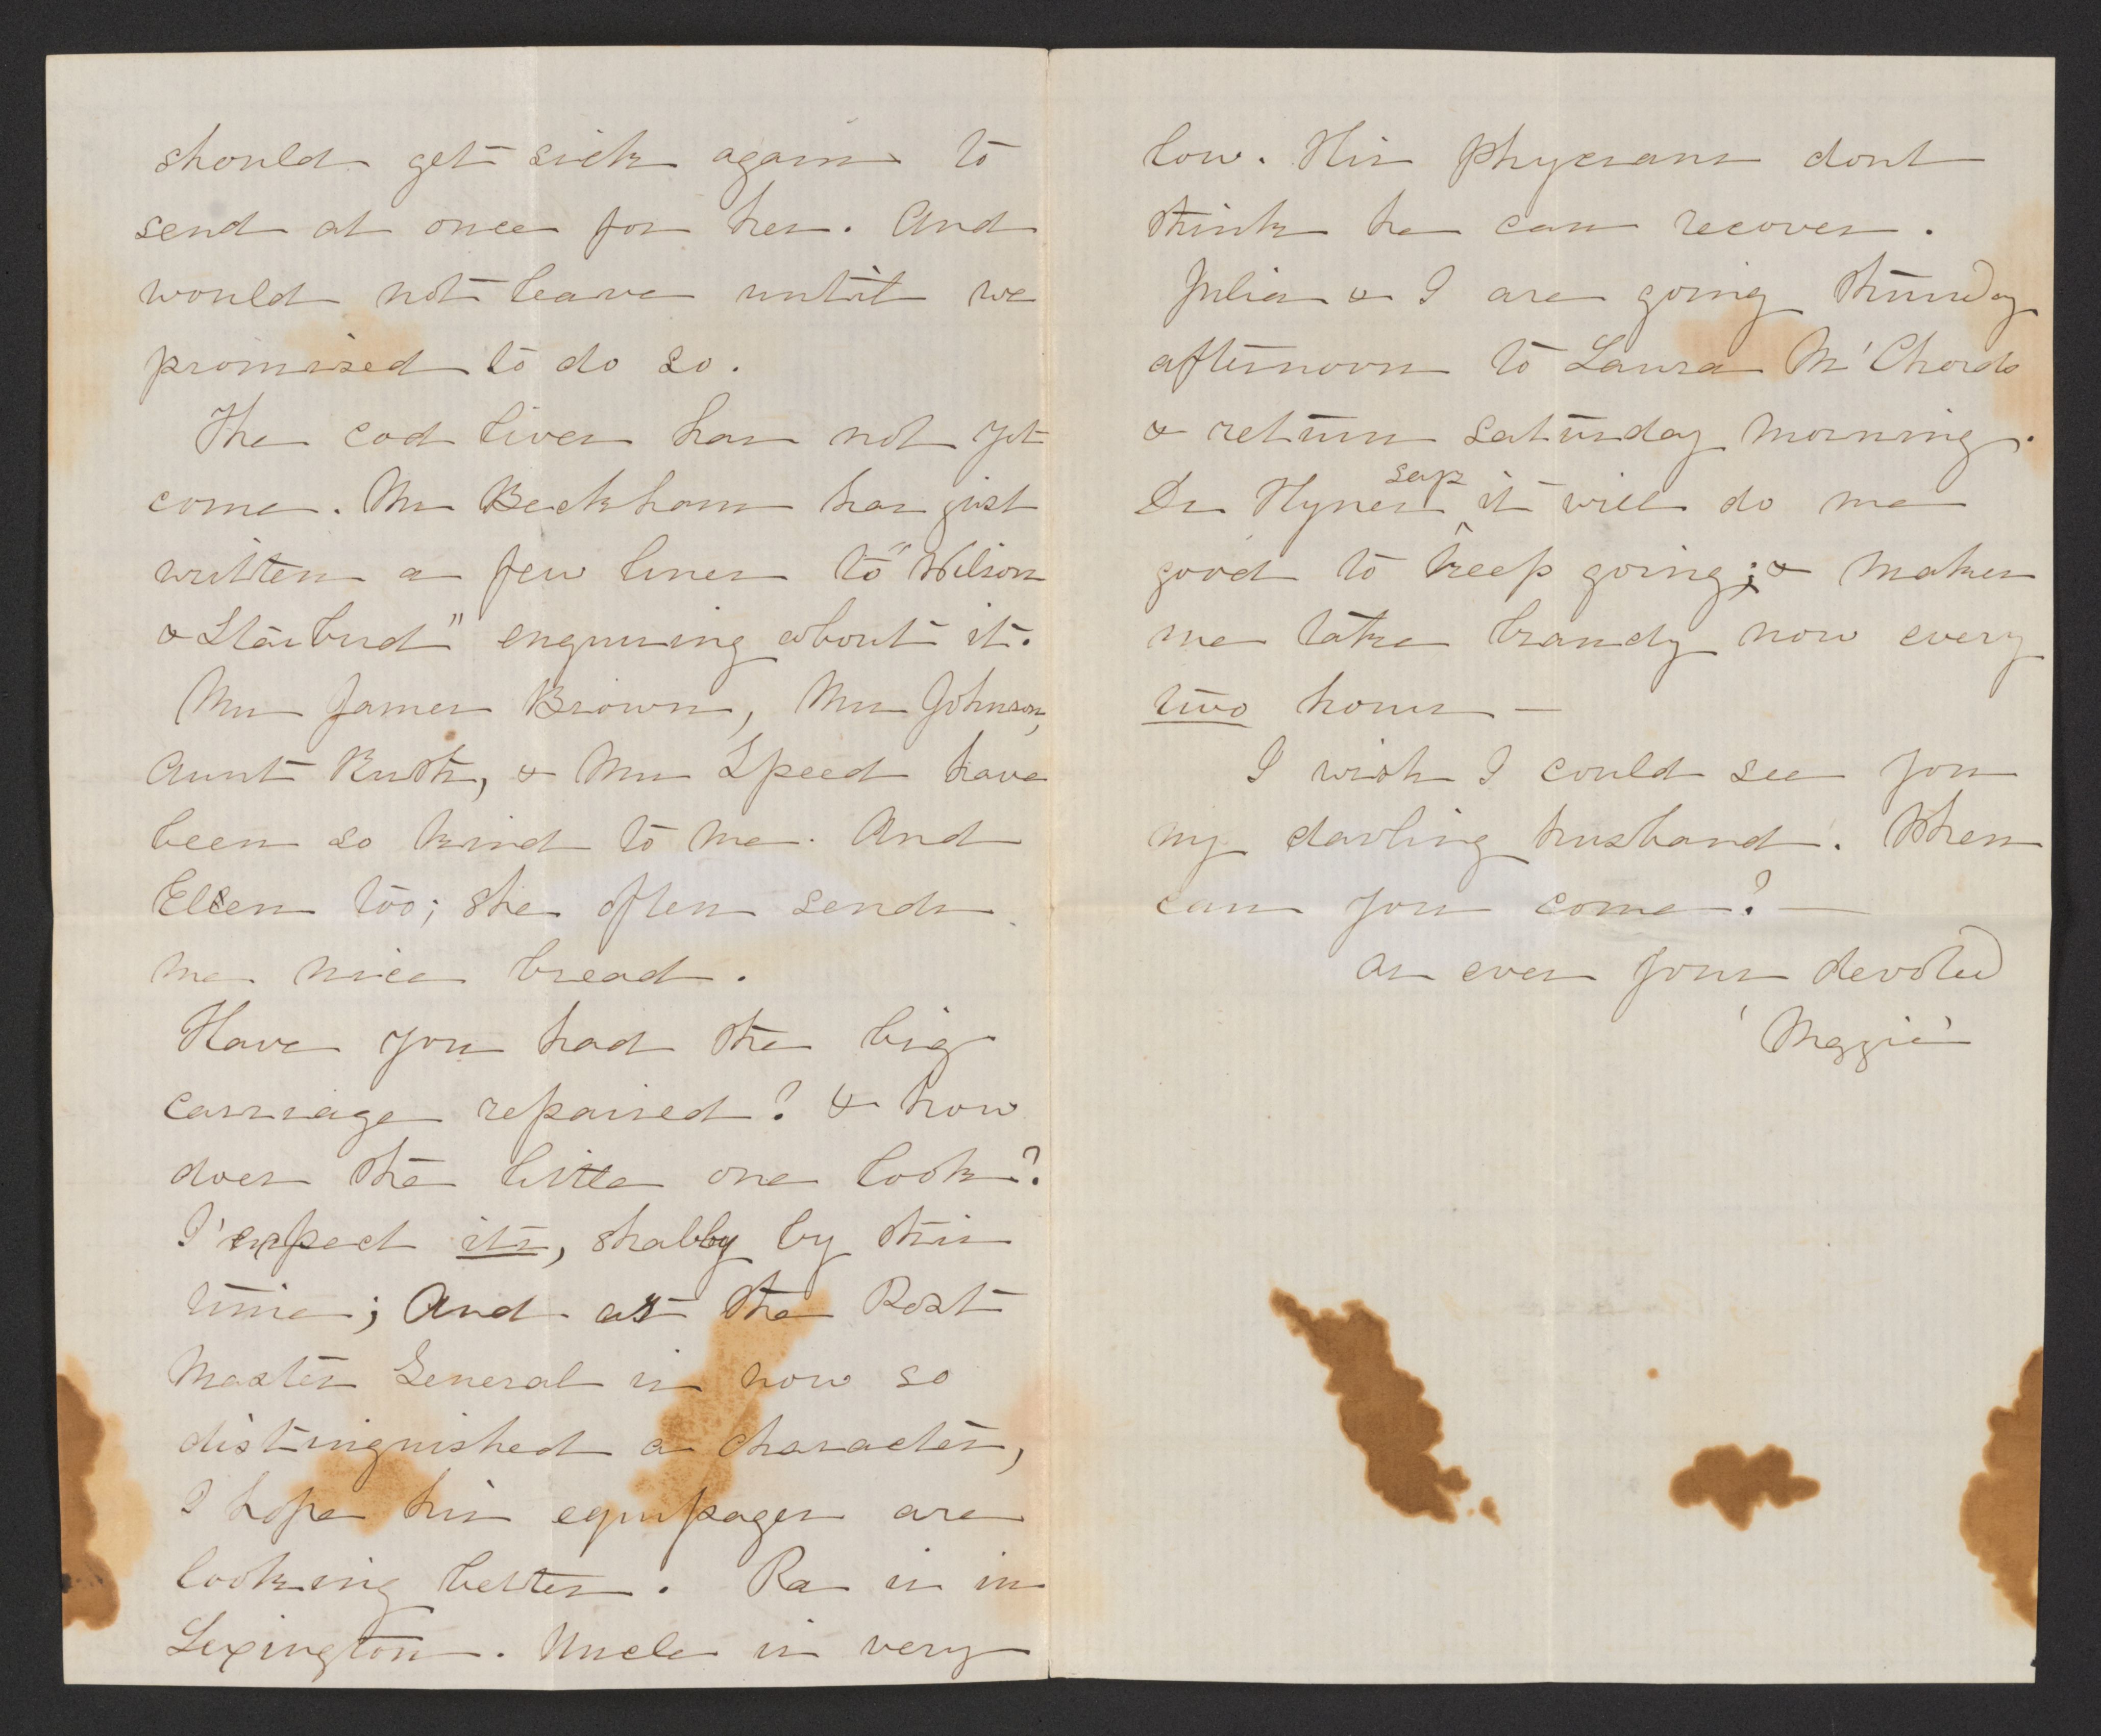 should get sick again to
send at once for her. And
would not leave until we
promised to do so.
The cod liver has not yet
come. Mr Beckham has just
written a few lines to "Wilson
& Starbird" enquiring about it.
Mrs James Brown, Mrs Johnson,
Aunt Ruth, & Mrs Speed have
been so kind to me. And
Ellen too; she often sends
me nice bread.
Have you had the big
carriage repaired? & how
does the little one look?
I expect its, shabby by this
time; And as the Post
Master General is now so
distinguished a character,
I hope his equipages are
looking better. Pa is in
Lexington. Uncle is very
low. His Phycians dont
think he can recover.
Julia & I are going thursday
afternoon to Laura McChords
& return saturday morning.
Dr Hynes says it will do me
good to keep going; & makes
me take brandy now every
two hours —
I wish I could see you
my darling husband. When
can you come? —
As ever your devoted
'Maggie'